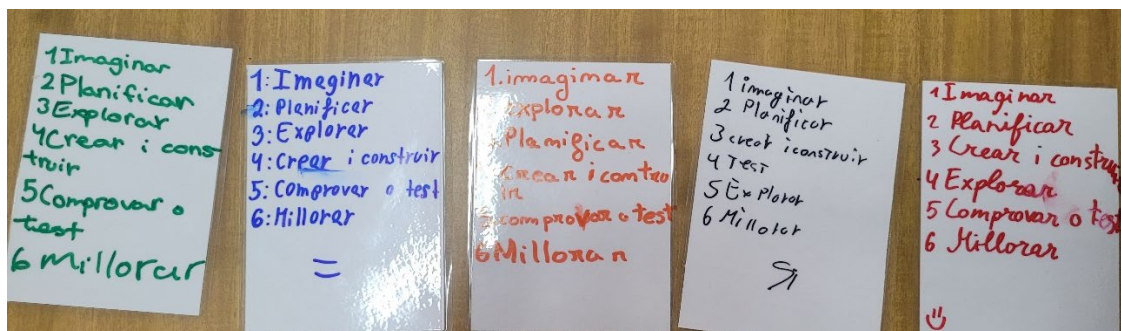 1Imaginar
2Planificar
3Explorar
4Crear i cons-
truir
5Comprovar o
test
6millorar
1:Imaginar
2:Planificar
3:Explorar
4:Crear i construir
5:Comprovar o test
6:Millorar
=
1.imaginar
Explorar
Planificar
Crear i contru
ir
comprovar o test
6Millorar
1 imaginar
2 Planificar
3 creat i construir
4 TEST
5 Explorar
6 Millorar
1 Imaginar
2 Planificar
3 Crear i construir
4 Explorar
5 Comprovar o test
6 Millorar